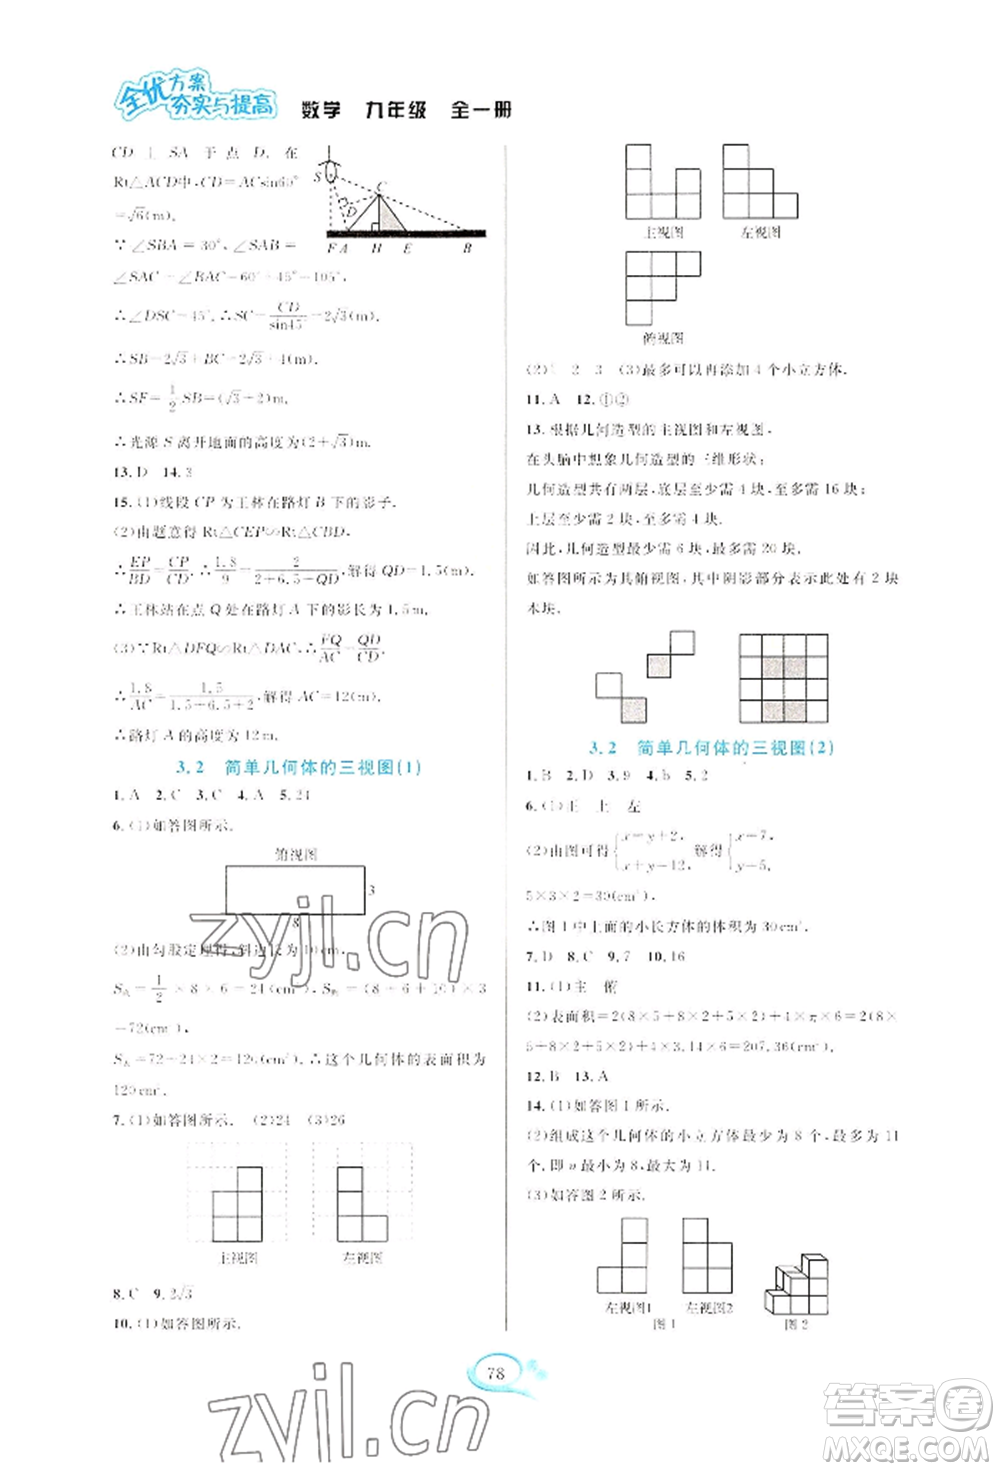 全优方案
夯实与提高
数学 九年级 全一册
CD⊥SA于点D.在
Rt△ACD中,CD=ACsin60°
=√6(m).
∵∠SBA=30°,∠SAB=
∠SAC-∠BAC=60°+45°=105°,
∴∠DSC=45°,∴SC=CD/sin45°=2√3(m).
∴SB=2√3+4(m).
∴SF=1/2 SB=(√3+2)(m).
∴光源S离开地面的高度为(2+√3)(m).
S
C
D
F A H E B
13.D 14.3
15.(1)线段CP为王林在路灯B下的影子.
(2)由题意得Rt△CEP∽Rt△CBD.
∴EP/BD=CP/CD.∴1.8/9=2/(2+6.5+QD).解得QD=1.5(m).
∴王林站在点Q处在路灯A下的影长为1.5m.
(3)∵Rt△DFQ∽Rt△DAC,∴FQ/AC=QD/CD.
∴1.8/AC=1.5/(1.5+6.5+2).解得AC=12(m).
∴路灯A的高度为12m.
3.2 简单几何体的三视图(1)
1.A 2.C 3.C 4.A 5.24
6.(1)如答图所示.
俯视图
3
8
(2)由勾股定理得,斜边长为10(cm).
S底=1/2×8×6=24(cm²),S侧=(8+6+10)×3
=72(cm²).
S表=72+24×2=120(cm²).∴这个几何体的表面积为
120cm².
7.(1)如答图所示. (2)24 (3)26
主视图 左视图
8.C 9.2√3
10.(1)如答图所示.
主视图 左视图
俯视图
(2)1 2 3 (3)最多可以再添加4个小立方体.
11.A 12.①②
13.根据几何造型的主视图和左视图,
在头脑中想象几何造型的三维形状;
几何造型共有两层,底层至少需4块,至多需16块;
上层至少需2块,至多需4块.
因此,几何造型至少需6块,至多需20块.
如答图所示为其俯视图,其中阴影部分表示此处有2块
木块.
3.2 简单几何体的三视图(2)
1.B 2.D 3.9 4.b 5.2
6.(1)主 上 左
(2)由图可得{x=y+2, x+y=12. 解得{x=7, y=5.
5×3×2=30(cm³).
∴图1中上面的小长方体的体积为30cm³.
7.D 8.C 9.7 10.16
11.(1)主 俯
(2)表面积=2(8×5+8×2+5×2)+4×π×6=2(8×
5+8×2+5×2)+4×3.14×6=207.36(cm²).
12.B 13.A
14.(1)如答图1所示.
(2)组成这个几何体的小立方体最少为8个,最多为11
个,即n最小为8,最大为11.
(3)如答图2所示.
左视图1 左视图2
图1 图2
78
zyjl.cn
zyjl.cn
答案圈
MXQE.COM